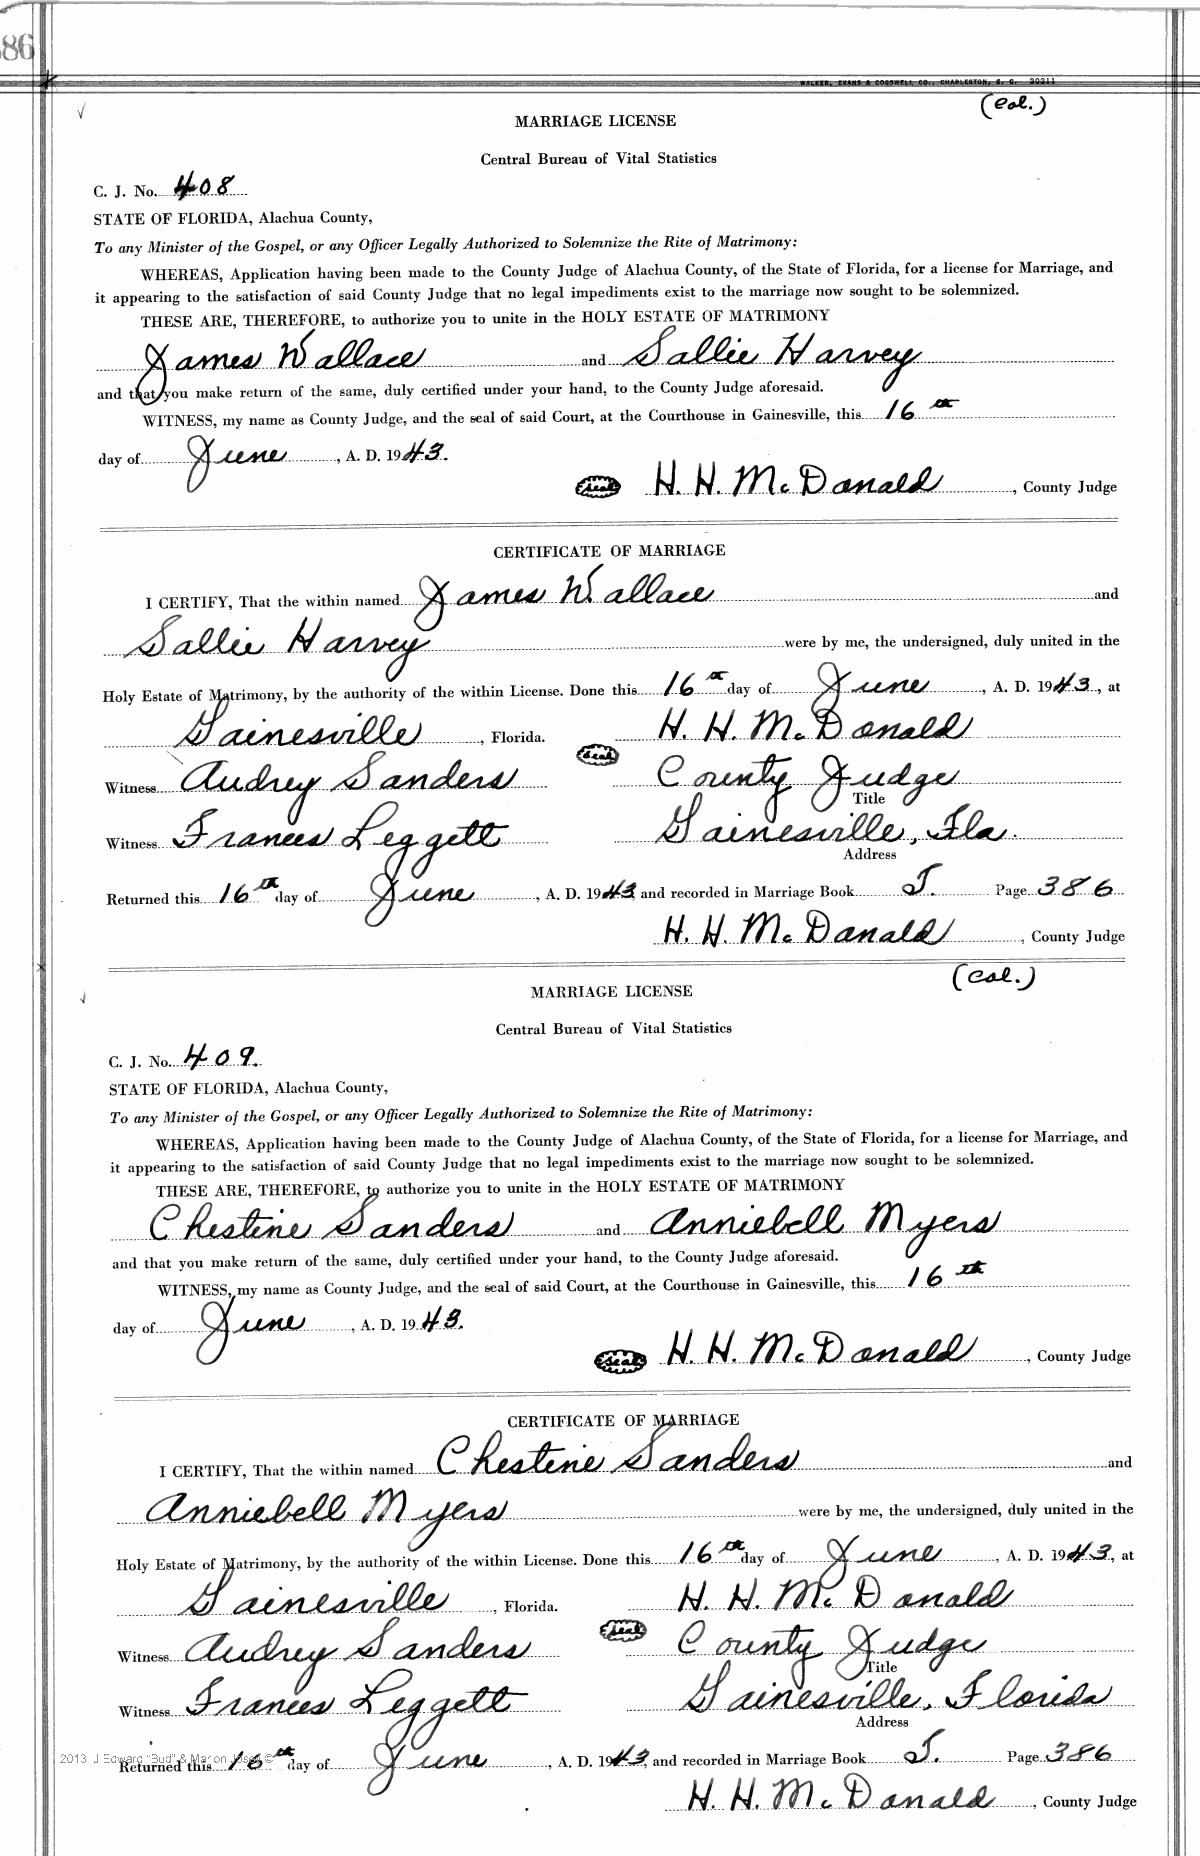 86
WALKER, EVANS & COGSWELL CO., CHARLESTON, S. C. 20211
(Col.)
MARRIAGE LICENSE
Central Bureau of Vital Statistics
C. J. No. 408
STATE OF FLORIDA, Alachua County,
To any Minister of the Gospel, or any Officer Legally Authorized to Solemnize the Rite of Matrimony:
WHEREAS, Application having been made to the County Judge of Alachua County, of the State of Florida, for a license for Marriage, and
it appearing to the satisfaction of said County Judge that no legal impediments exist to the marriage now sought to be solemnized.
THESE ARE, THEREFORE, to authorize you to unite in the HOLY ESTATE OF MATRIMONY
James Wallace and Sallie Harvey
and that you make return of the same, duly certified under your hand, to the County Judge aforesaid.
WITNESS, my name as County Judge, and the seal of said Court, at the Courthouse in Gainesville, this 16th
day of June, A. D. 1943.
seal H. H. McDonald, County Judge
CERTIFICATE OF MARRIAGE
I CERTIFY, That the within named James Wallace and
Sallie Harvey were by me, the undersigned, duly united in the
Holy Estate of Matrimony, by the authority of the within License. Done this 16th day of June, A. D. 1943, at
Gainesville, Florida. H. H. McDonald
seal
Witness Audrey Sanders County Judge
Title
Witness Frances Leggett Gainesville, Fla.
Address
Returned this 16th day of June, A. D. 1943 and recorded in Marriage Book J. Page 386
H. H. McDonald, County Judge
(Col.)
MARRIAGE LICENSE
Central Bureau of Vital Statistics
C. J. No. 409.
STATE OF FLORIDA, Alachua County,
To any Minister of the Gospel, or any Officer Legally Authorized to Solemnize the Rite of Matrimony:
WHEREAS, Application having been made to the County Judge of Alachua County, of the State of Florida, for a license for Marriage, and
it appearing to the satisfaction of said County Judge that no legal impediments exist to the marriage now sought to be solemnized.
THESE ARE, THEREFORE, to authorize you to unite in the HOLY ESTATE OF MATRIMONY
Chestine Sanders and Anniebell Myers
and that you make return of the same, duly certified under your hand, to the County Judge aforesaid.
WITNESS, my name as County Judge, and the seal of said Court, at the Courthouse in Gainesville, this 16th
day of June, A. D. 1943.
seal H. H. McDonald, County Judge
CERTIFICATE OF MARRIAGE
I CERTIFY, That the within named Chestine Sanders and
Anniebell Myers were by me, the undersigned, duly united in the
Holy Estate of Matrimony, by the authority of the within License. Done this 16th day of June, A. D. 1943, at
Gainesville, Florida. H. H. McDonald
seal
Witness Audrey Sanders County Judge
Title
Witness Frances Leggett Gainesville, Florida
Address
2013 J Edward "Bud" & Marion
Returned this 16th day of June, A. D. 1943, and recorded in Marriage Book J. Page 386
H. H. McDonald, County Judge